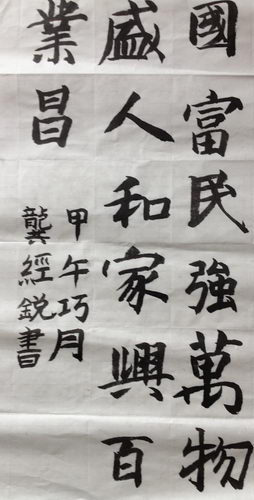 國富民強萬物
盛人和家興百
業昌
甲午巧月
龔經銳書